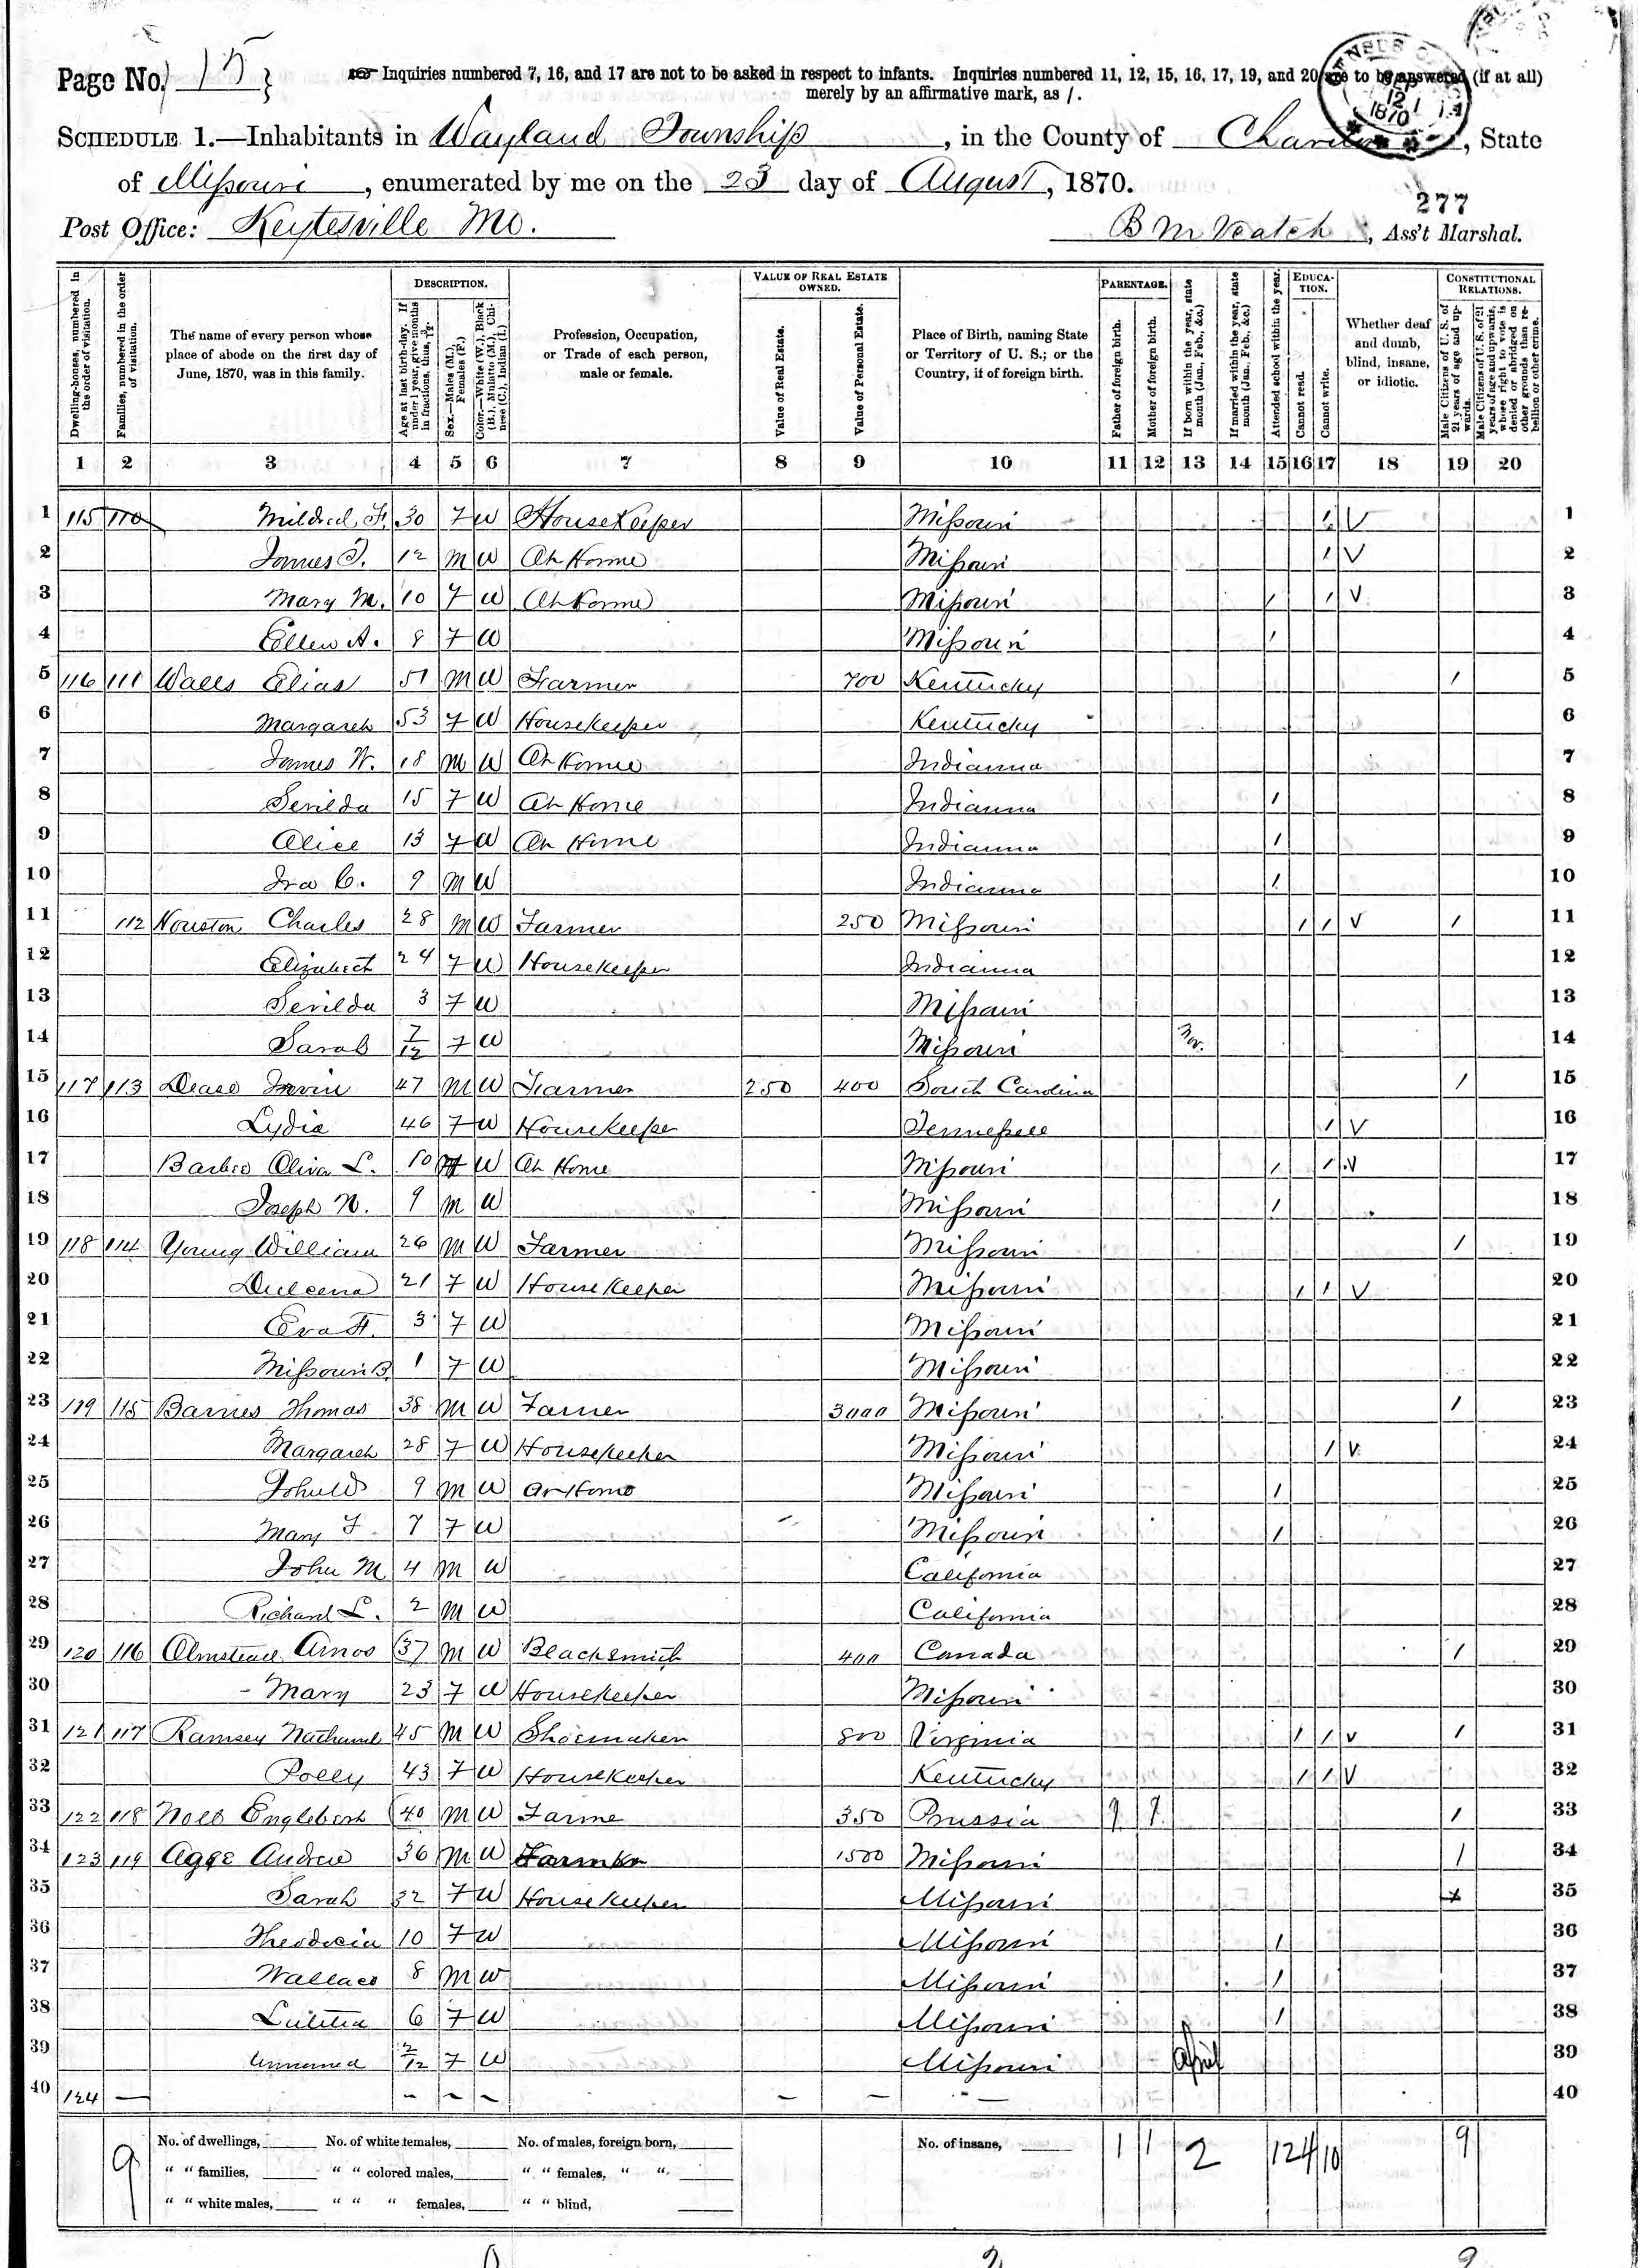 Page No. 15
Inquiries numbered 7, 16, and 17 are not to be asked in respect to infants. Inquiries numbered 11, 12, 15, 16, 17, 19, and 20 are to be answered (if at all)
merely by an affirmative mark, as /.
SCHEDULE 1.—Inhabitants in Wayland Township, in the County of Chariton, State
of Missouri, enumerated by me on the 23 day of August, 1870.
277
Post Office: Keytesville Mo. B M Veatch, Ass't Marshal.
Dwelling-houses, numbered in the order of visitation.
Families, numbered in the order of visitation.
The name of every person whose place of abode on the first day of June, 1870, was in this family.
DESCRIPTION.
Age at last birth-day. If under 1 year, give months in fractions, thus, 3/12.
Sex.—Males (M.), Females (F.)
Color.—White (W.), Black (B.), Mulatto (M.), Chinese (C.), Indian (I.)
Profession, Occupation, or Trade of each person, male or female.
VALUE OF REAL ESTATE OWNED.
Value of Real Estate.
Value of Personal Estate.
Place of Birth, naming State or Territory of U. S.; or the Country, if of foreign birth.
PARENTAGE.
Father of foreign birth.
Mother of foreign birth.
If born within the year, state month (Jan., Feb., &c.)
If married within the year, state month (Jan., Feb., &c.)
Attended school within the year.
EDUCATION.
Cannot read.
Cannot write.
Whether deaf and dumb, blind, insane, or idiotic.
CONSTITUTIONAL RELATIONS.
Male Citizens of U. S. of 21 years of age and upwards.
Male Citizens of U. S. of 21 years of age and upwards, whose right to vote is denied or abridged on other grounds than rebellion or other crime.
1 2 3 4 5 6 7 8 9 10 11 12 13 14 15 16 17 18 19 20
1 115 110 Mildred F. 30 F W House Keeper Missouri / V 1
2 James T. 12 M W At Home Missouri / V 2
3 Mary M. 10 F W At Home Missouri / / V 3
4 Ellen A. 8 F W Missouri / 4
5 116 111 Walls Elias 51 M W Farmer 700 Kentucky / 5
6 Margaret 53 F W Housekeeper Kentucky 6
7 James W. 18 M W At Home Indianna 7
8 Serilda 15 F W At Home Indianna / 8
9 Alice 13 F W At Home Indianna / 9
10 Ira C. 9 M W Indianna / 10
11 112 Houston Charles 28 M W Farmer 250 Missouri / / V / 11
12 Elizabeth 24 F W Housekeeper Indianna 12
13 Serilda 3 F W Missouri 13
14 Sarah 7/12 F W Missouri Nov. 14
15 117 113 Irvin 47 M W Farmer 250 400 South Carolina / 15
16 Lydia 46 F W Housekeeper Tennessee / V 16
17 Oliver L. 10 W At Home Missouri / / V 17
18 Joseph N. 9 M W Missouri / 18
19 118 114 Young William 26 M W Farmer Missouri / 19
20 Dulcena 21 F W House Keeper Missouri / / V 20
21 Eva F. 3 F W Missouri 21
22 Missouri B. 1 F W Missouri 22
23 119 115 Barnes Thomas 38 M W Farmer 3000 Missouri / 23
24 Margaret 28 F W Housekeeper Missouri / V 24
25 John W 9 M W At Home Missouri / 25
26 Mary F 7 F W Missouri / 26
27 John M 4 M W California 27
28 Richard L. 2 M W California 28
29 120 116 Olmstead Amos 37 M W Blacksmith 400 Canada / 29
30 Mary 23 F W Housekeeper Missouri 30
31 121 117 Ramsey Nathanel 45 M W Shoemaker 800 Virginia / / V / 31
32 Polly 43 F W Housekeeper Kentucky / / V 32
33 122 118 Noll Englebert 40 M W Farme 350 Prussia 1 1 / 33
34 123 119 Agge Andrew 36 M W Farmer 1500 Missouri / 34
35 Sarah 32 F W Housekeeper Missouri 35
36 Theodocia 10 F W Missouri / 36
37 Wallace 8 M W Missouri / 37
38 Lutitia 6 F W Missouri / 38
39 Unnamed 2/12 F W Missouri April 39
40 124 — — — — — — — 40
9
No. of dwellings, No. of white females, No. of males, foreign born, No. of insane, 1 1 2 12 4 10 9
" " families, " " colored males, " " females, " "
" " white males, " " " females, " " blind,